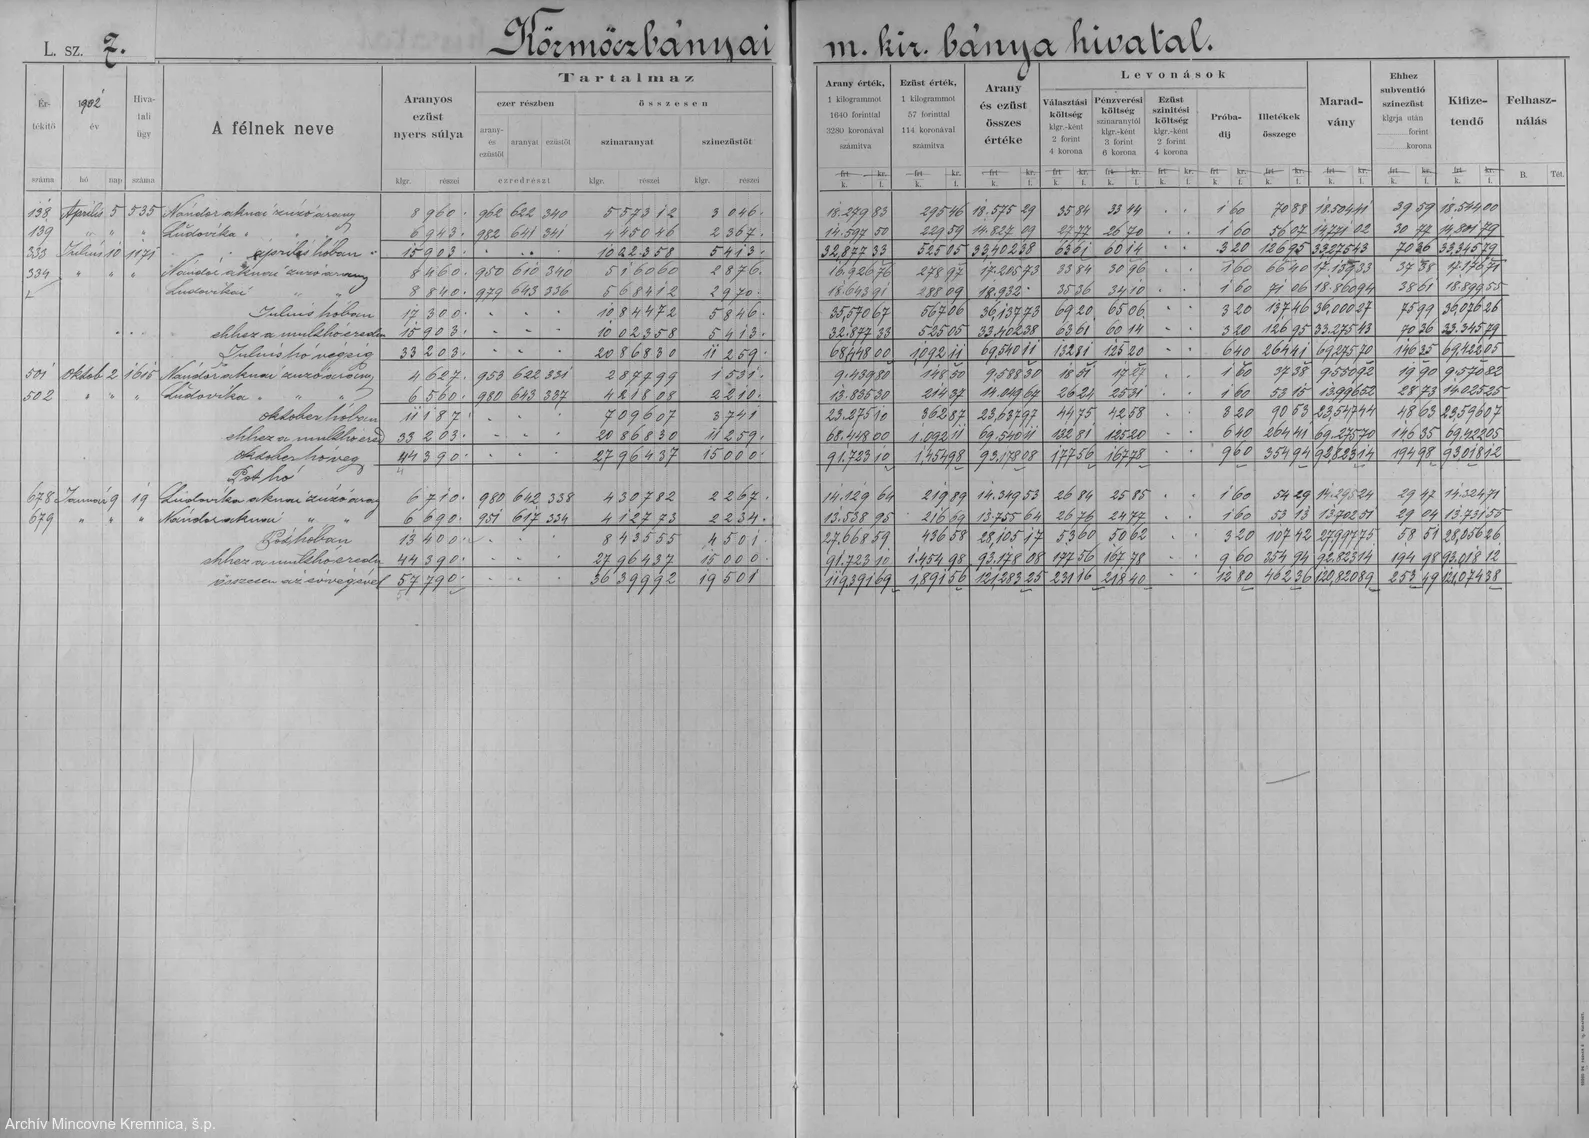 L. sz. 7. Körmöczbányai m. kir. bánya hivatal.
Értékítő száma
1902 év
hó nap
Hivatali ügy száma
A félnek neve
Aranyos ezüst nyers súlya
klgr. részei
Tartalmaz
ezer részben
arany- és ezüstöt aranyat ezüstöt
ezredrészt
összesen
színaranyat
klgr. részei
színezüstöt
klgr. részei
Arany érték, 1 kilogrammot 1640 forinttal 3280 koronával számítva
Ezüst érték, 1 kilogrammot 57 forinttal 114 koronával számítva
Arany és ezüst összes értéke
Levonások
Választási költség klgr.-ként 2 forint 4 korona
Pénzverési költség színaranytól klgr.-ként 3 forint 6 korona
Ezüst színítési költség klgr.-ként 2 forint 4 korona
Próbadíj
Illetékek összege
Maradvány
Ehhez subventió színezüst klgrja után forint korona
Kifizetendő
Felhasználás
frt kr. k. f.
B. Tét.
138 Április 5 535 Nándor aknai zúzóarany 8 960 962 622 340 5 57312 3 046 18.279 83 295 46 18.575 29 35 84 33 44 1 60 70 88 18.504 41 39 59 18.544 00
139 " " " Ludovika " " 6 943 982 641 341 4 45046 2 367 14.597 50 229 59 14.827 09 27 77 26 70 1 60 56 07 14.771 02 30 77 14.801 79
április hóban 15 903 10 02358 5 413 32,877 33 525 05 33,402 38 63 61 60 14 3 20 126 95 33,275 43 70 36 33,345 79
333 Július 10 1171 Nándor aknai zúzóarany 8 460 950 610 340 5 16060 2 876 16.926 76 278 97 17.205 73 33 84 30 96 1 60 66 40 17.139 33 37 38 17.176 71
334 " " " Ludovikai " " 8 840 979 643 336 5 68412 2 970 18.643 91 288 09 18.932 35 36 34 10 1 60 71 06 18.860 94 38 61 18.899 55
Július hóban 17 300 10 84472 5 846 35,570 67 567 06 36,137 73 69 20 65 06 3 20 137 46 36,000 27 75 99 36,076 26
ehhez a mult hó eredm 15 903 10 02358 5 413 32.877 33 525 05 33.402 38 63 61 60 14 3 20 126 95 33.275 43 70 36 33.345 79
Július hó végéig 33 203 20 86830 11 259 68,448 00 1,092 11 69,540 11 132 81 125 20 6 40 264 41 69,275 70 146 35 69,422 05
501 Oktob 2 1615 Nándor aknai zúzóarany 4 627 953 622 331 2 87799 1 531 9.439 80 148 50 9.588 30 18 51 17 27 1 60 37 38 9.550 92 19 90 9.570 82
502 " " " Ludovika " " 6 560 980 643 337 4 21808 2 210 13.835 30 214 37 14.049 67 26 24 25 31 1 60 53 15 13.996 52 28 73 14.025 25
október hóban 11 187 7 09607 3 741 23.275 10 362 87 23,637 97 44 75 42 58 3 20 90 53 23,547 44 48 63 23,596 07
ehhez a mult hó ered 33 203 20 86830 11 259 68.448 00 1.092 11 69.540 11 132 81 125 20 6 40 264 41 69.275 70 146 35 69.422 05
október hó vég 44 390 27 96437 15 000 91.723 10 1.454 98 93.178 08 177 56 167 78 9 60 354 94 92,823 14 194 98 93,018 12
Pót hó
678 Január 9 19 Ludovika aknai zúzóarany 6 710 980 642 338 4 30782 2 267 14.129 64 219 89 14.349 53 26 84 25 85 1 60 54 29 14.295 24 29 47 14.324 71
679 " " " Nándor aknai " " 6 690 951 617 334 4 12773 2 234 13.538 95 216 69 13.755 64 26 76 24 77 1 60 53 13 13.702 51 29 04 13.731 55
Pót hóban 13 400 8 43555 4 501 27.668 59 436 58 28,105 17 53 60 50 62 3 20 107 42 27,997 75 58 51 28,056 26
ehhez a mult hó eredm 44 390 27 96437 15 000 91.723 10 1.454 98 93.178 08 177 56 167 78 9 60 354 94 92.823 14 194 98 93,018 12
összesen az év végével 57 790 36 39992 19 501 119,391 69 1,891 56 121,283 25 231 16 218 40 12 80 462 36 120,820 89 253 49 121,074 38
Archív Mincovne Kremnica, š.p.